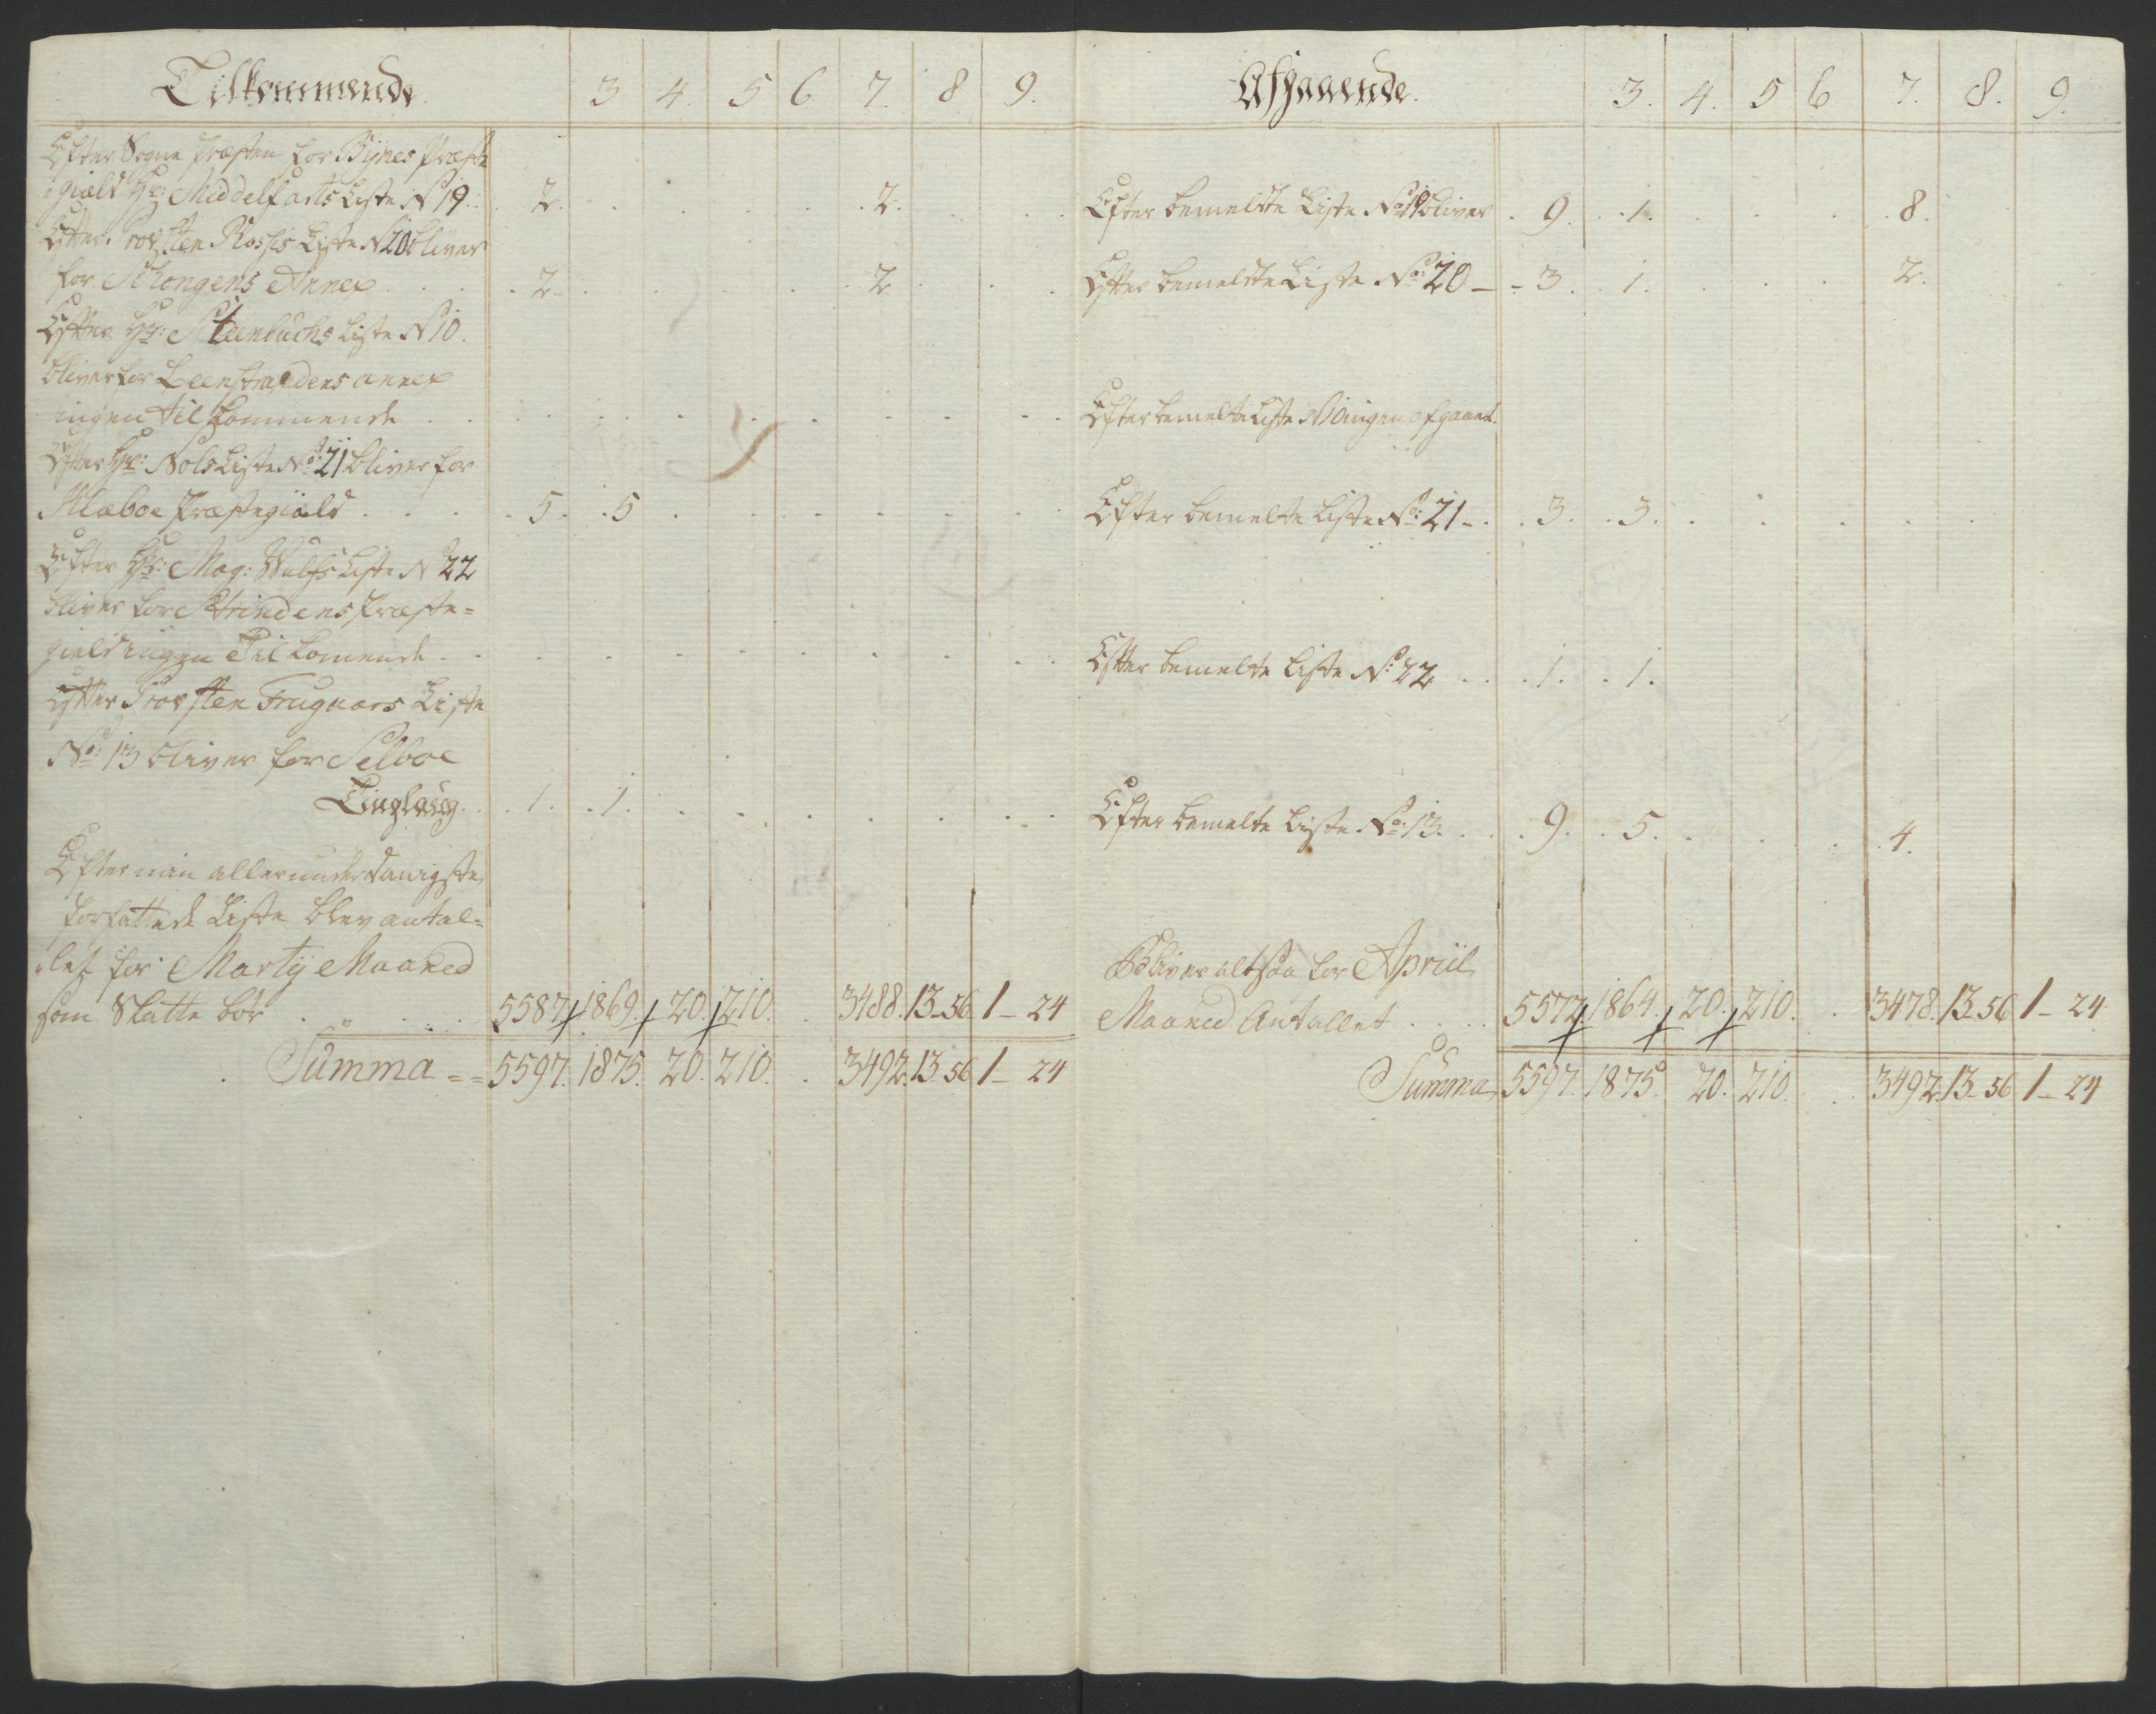 Tilkommende. 3 4. 5 6 7. 8 9.
Efter Sogne Præsten for Bynes Præste
gield Hr: Middelfarts Liste No 19. 2. 2.
Efter Provsten Rossis Liste No 20 bliver
for Schongens Annex 2. 2
Efter Hr: Steenbuchs Liste No 10.
bliver for Leenstrandens annex
ingen tilkommende
Efter Hr: Nols Liste No: 21 bliver for
Klæboe Præstegiæld 5. 5
Efter Hr: Mag: Wulfs Liste No 22
bliver for Strindens Præste=
gield ingen Tilkomende
Efter Provsten Frugaars Liste
No: 13 bliver for Selboe
Tinglaug. 1. 1.
Efter min allerunderdanigste
forfattede Liste blev antal=
let for Martij Maaned
som Skatte bør 5587. 1869. 20. 210. 3488. 13-56 1-24
Summa == 5597. 1875. 20. 210. 3492. 13.56 1-24
Afgaaende. 3. 4. 5 6 7. 8. 9.
Efter bemeldte Liste No: 19 bliver 9. 1. 8.
Efter bemeldte Liste No: 20 - 3. 1. 2.
Efter bemelte Liste No 10 ingen afgaaend.
Efter bemelte Liste No: 21 - 3. 3.
Efter bemelte Liste No: 22 1. 1.
Efter bemelte Liste No: 13. 9. 5. 4.
Bliver altsaa for Apriil
Maaned Antallet 5572. 1864. 20. 210. 3478. 13-56 1-24
Summa 5597. 1875. 20. 210. 3492. 13-56 1-24